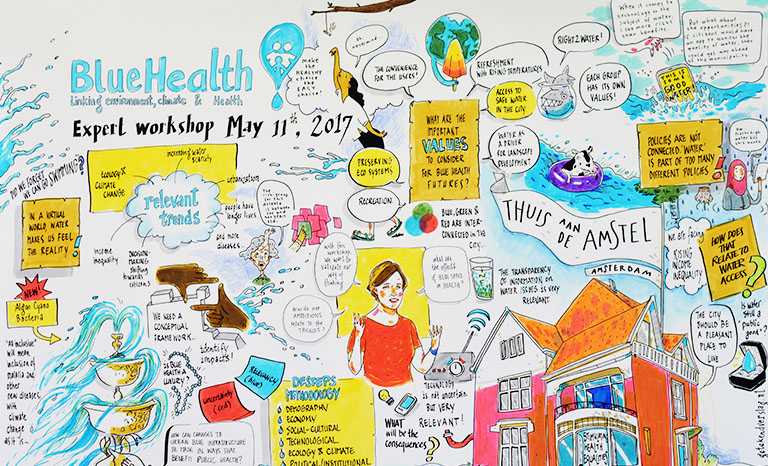 BlueHealth
Linking environment, climate & Health
Expert workshop May 11th, 2017
make
the
HEALTHY
choice
the
EASY
choice!
THE CONVENIENCE
FOR THE USERS!
REFRESHMENT
with RISING TEMPERATURES
ACCESS TO
SAFE WATER
IN THE CITY
RIGHT2WATER!
EACH GROUP
HAS ITS OWN
VALUES!
When it comes to
technology in the
subject of water,
THIS IS
SOME
GOOD
WATER!
POLICIES ARE NOT
CONNECTED. 'WATER'
IS PART OF TOO MANY
DIFFERENT POLICIES!
WHAT ARE THE
IMPORTANT
VALUES
TO CONSIDER
FOR BLUE HEALTH
FUTURES?
WATER AS
A DRIVER
FOR LANDSCAPE
DEVELOPMENT
PRESERVING
ECO SYSTEMS
RECREATION
BLUE, GREEN &
RED ARE INTER-
CONNECTED IN THE
CITY
THUIS AAN
DE AMSTEL
AMSTERDAM
DO WE FORGET
WE CAN GO SWIMMING?
increasing water
scarcity
ECOLOGY &
CLIMATE
CHANGE
urbanization
relevant
trends
people have
longer lives,
and more
diseases
income
inequality
DECISION-
MAKING
shifting
towards
citizens
IN A VIRTUAL
WORLD, WATER
MAKES US FEEL
THE REALITY!
NEW!
Algae Cyano
Bacteria
"All inclusive"
will mean
inclusion of
malaria and
other
new diseases
with
climate
change
as it is
WE NEED A
CONCEPTUAL
FRAMEWORK
identify
impacts!
IS BLUE
HEALTH A
LUXURY?
Uncertainty
(red)
RELEVANCY
(blue)
HOW CAN CHANGES TO
URBAN BLUE INFRASTRUCTURE
BE MADE IN WAYS THAT
BENEFIT PUBLIC HEALTH?
DESTEPS
METHODOLOGY
DEMOGRAPHY
ECONOMY
SOCIAL-CULTURAL
TECHNOLOGICAL
ECOLOGY & CLIMATE
POLITICAL/INSTITUTIONAL
with this
workshop
we want to
validate our
way of
thinking
How do our
AMBITIONS
relate to the
TRENDS?
what are
the effects
of BLUE SPACE
on HEALTH?
THE TRANSPARENCY
OF INFORMATION ON
WATER ISSUES IS VERY
RELEVANT.
TECHNOLOGY
is not uncertain
but VERY
RELEVANT!
WHAT
will be the
consequences?
We are facing
RISING
INCOME
INEQUALITY
HOW DOES
THAT
RELATE TO
WATER
ACCESS?
THE CITY
SHOULD BE
A PLEASANT
PLACE TO
LIVE
is water
still a
'public
good'?
STIMULATE
HEALTH
EQUALITIES
getekendverslag.nl